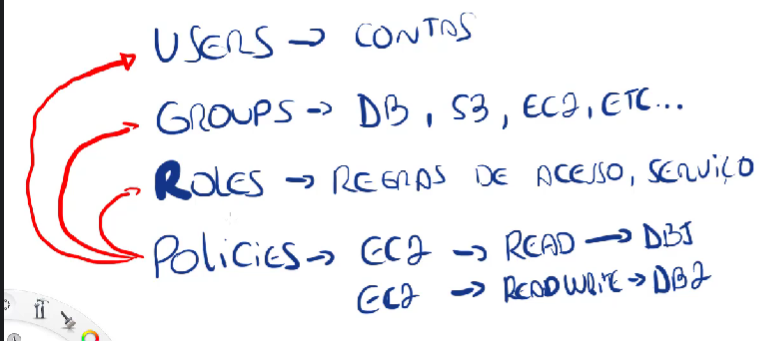 USERS → CONTAS
GROUPS → DB, S3, EC2, ETC...
ROLES → REGRAS DE ACESSO, SERVIÇO
POLICIES → EC2 → READ → DB1
EC2 → READWRITE → DB2